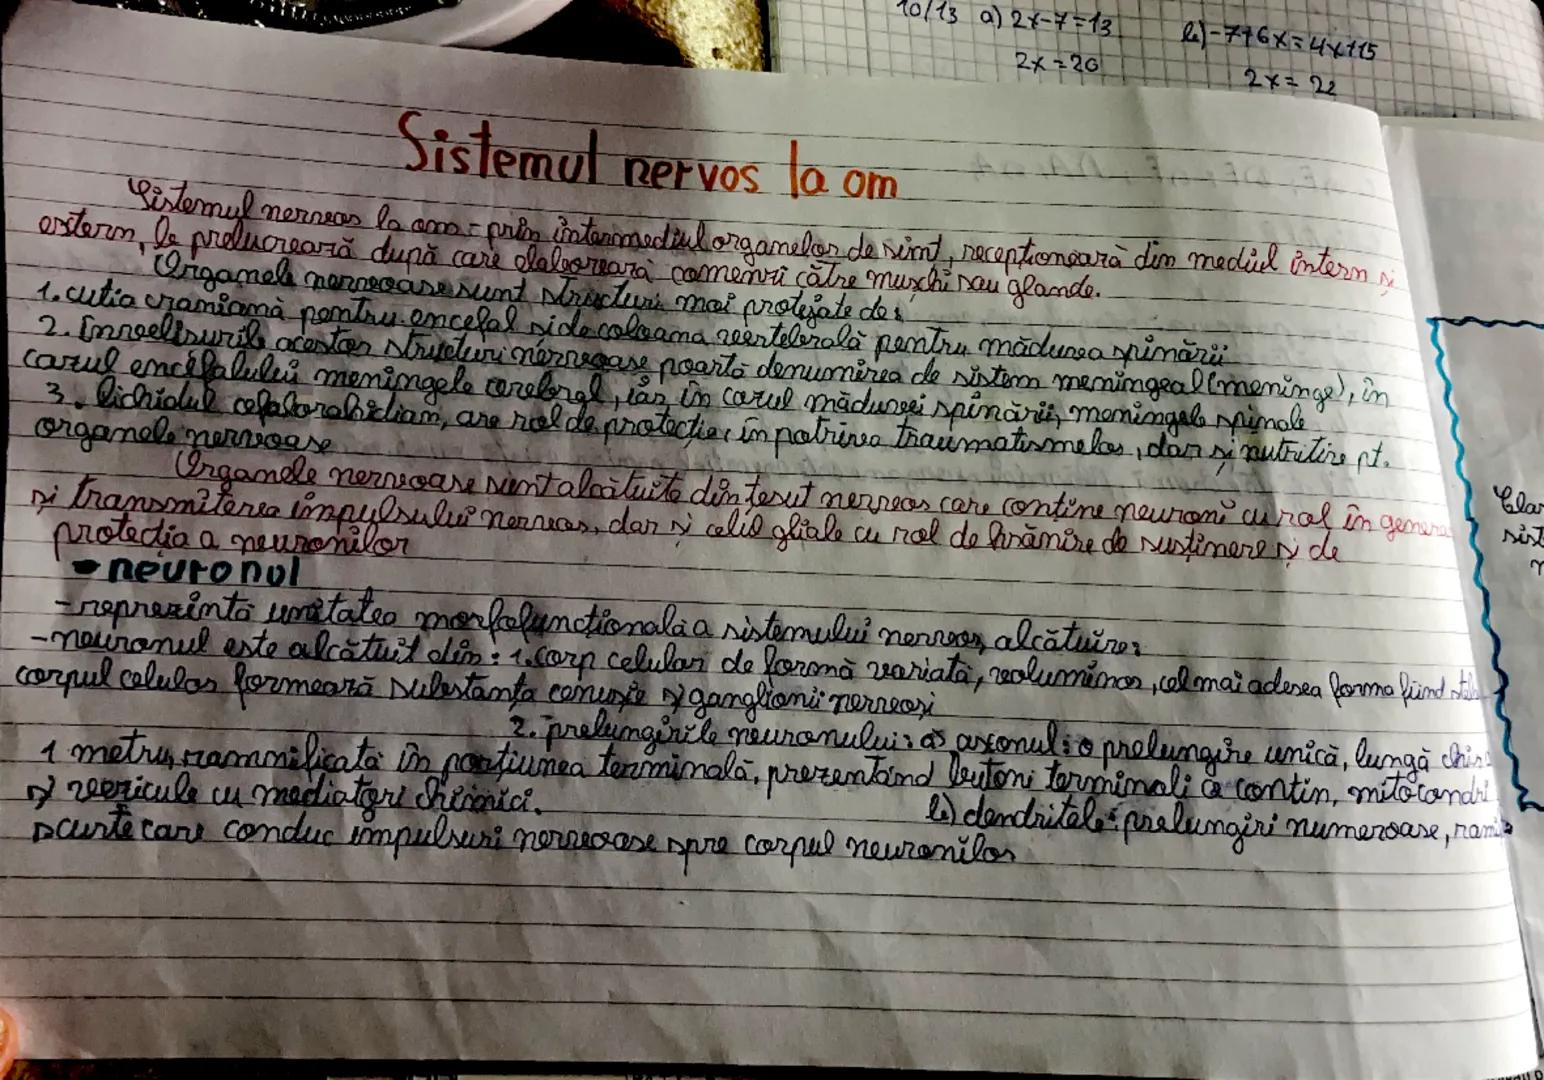 10/13 a) 2x-7=13
b) -7+6x=4x+15
2x=20
2x=22
Sistemul nervos la om
Sistemul nervos la om = prin intermediul organelor de simt, receptionează din mediul intern și
extern, le prelucrează după care elaborează comenzi către mușchi sau glande.
Organele nervoase sunt structuri mai protejate de:
1. cutia craniană pentru encefal si de coloana vertebrală pentru măduva spinării
2. Invelisurile acestor structuri nervoase poartă denumirea de sistem meningeal (meninge), în
cazul encefalului meningele cerebral, iar în cazul măduvei spinării, meningele spinale
3. lichidul cefalorahidian, are rol de protectie, impotriva traumatismelor, dar și nutritive pt.
organele nervoase
Organele nervoase sunt alcătuite din tesut nervos care contine neuroni cu rol în genera
și transmiterea impulsului nervos, dar și celule gliale cu rol de hrănire de susținere și de
protecția a neuronilor
neuronul
- reprezintă unitatea morfofuncțională a sistemului nervos, alcătuire:
- neuronul este alcătuit din: 1. corp celular de formă variată, voluminos, cel mai adesea forma fiind stela
corpul celular formează substanța cenușie și ganglionii nervoși
2. prelungirile neuronului: a) axonul: o prelungire unică, lungă chiar
1 metru, rammificată în porțiunea terminală, prezentând butoni terminali ce contin, mitocondri
și vezicule cu mediatori chimici.
b) dendritele: prelungiri numeroase, rami
scurte care conduc impulsuri nervoase spre corpul neuronilor
Clas
sist